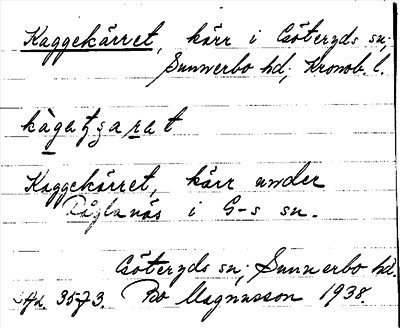 Kaggekärret, kärr i Göteryds sn;
Sunnerbo hd; Kronob. l.
kàgatʒarat
Kaggekärret, kärr under
Råglanäs i G-s sn.
Göteryds sn; Sunnerbo hd.
3573. Bo Magnusson 1938.